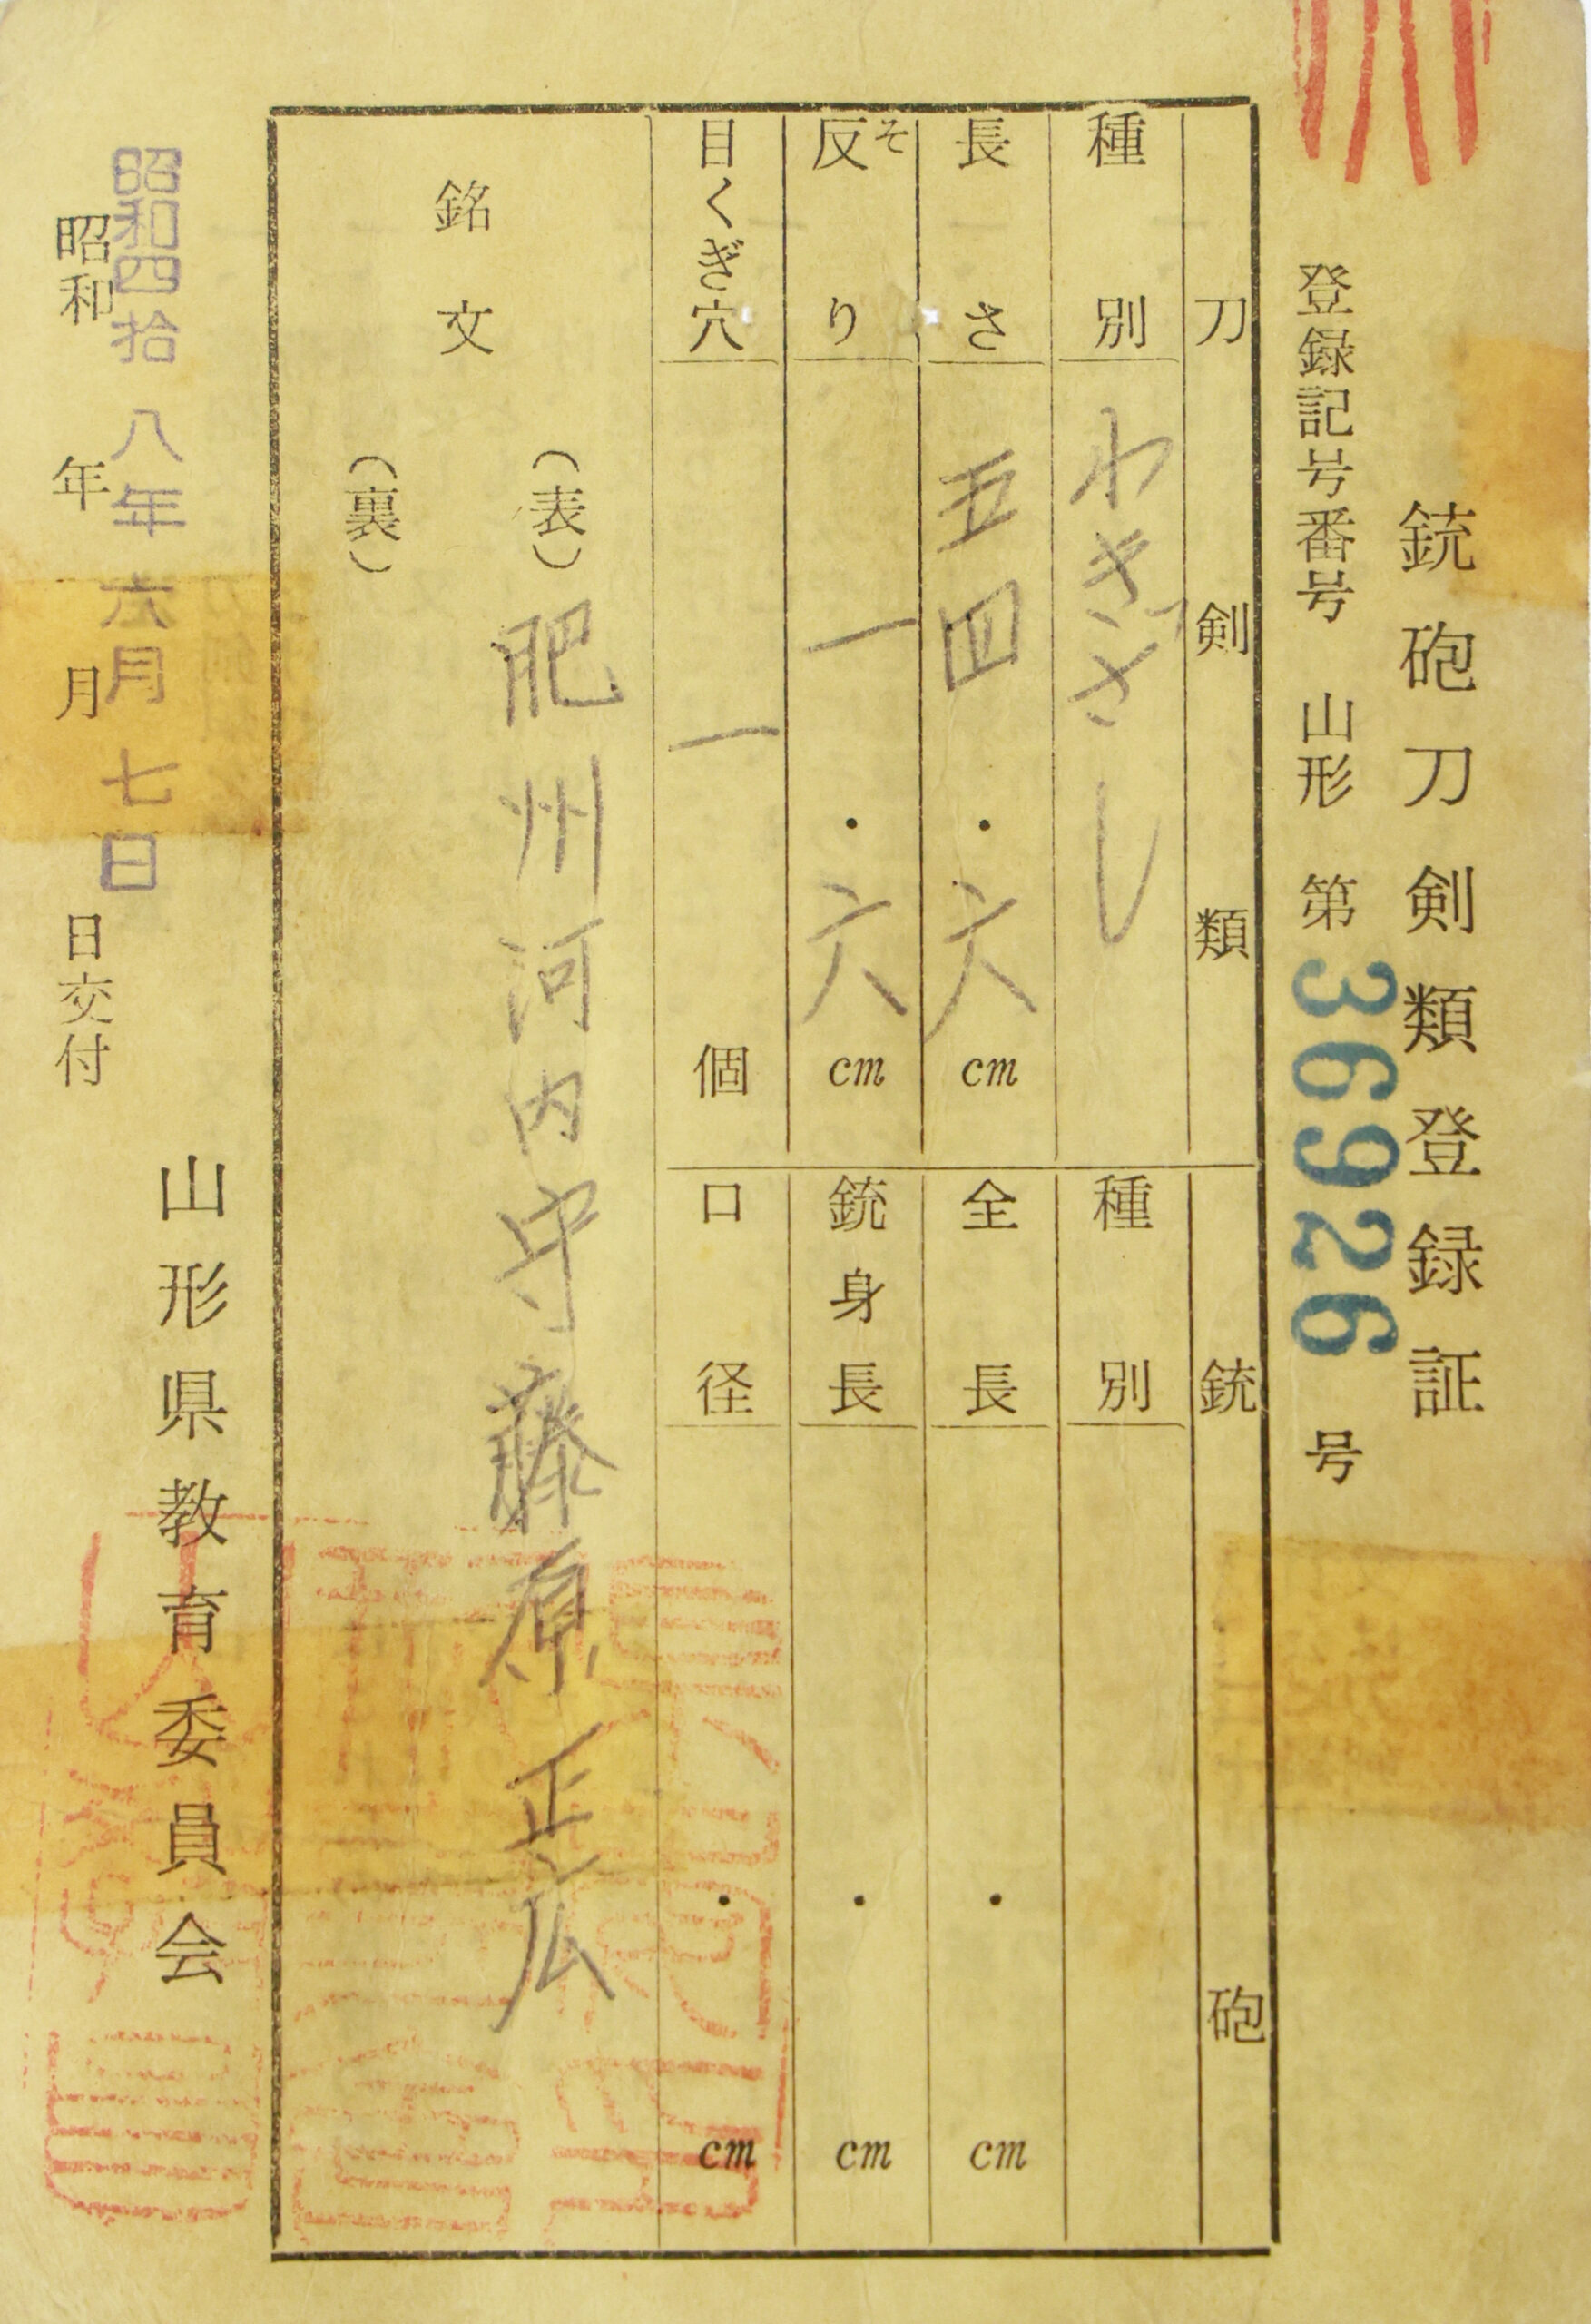 銃砲刀剣類登録証
登録記号番号 山形 第 36926 号
刀剣類
種別 わきざし
長さ 五四・六 cm
反り 一・六 cm
そ
目くぎ穴 一 個
銃砲
種別
全長 ・ cm
銃身長 ・ cm
口径 ・ cm
銘文
(表) 肥州河内守藤原正広
(裏)
昭和四拾八年六月七日
昭和 年 月 日交付
山形県教育委員会